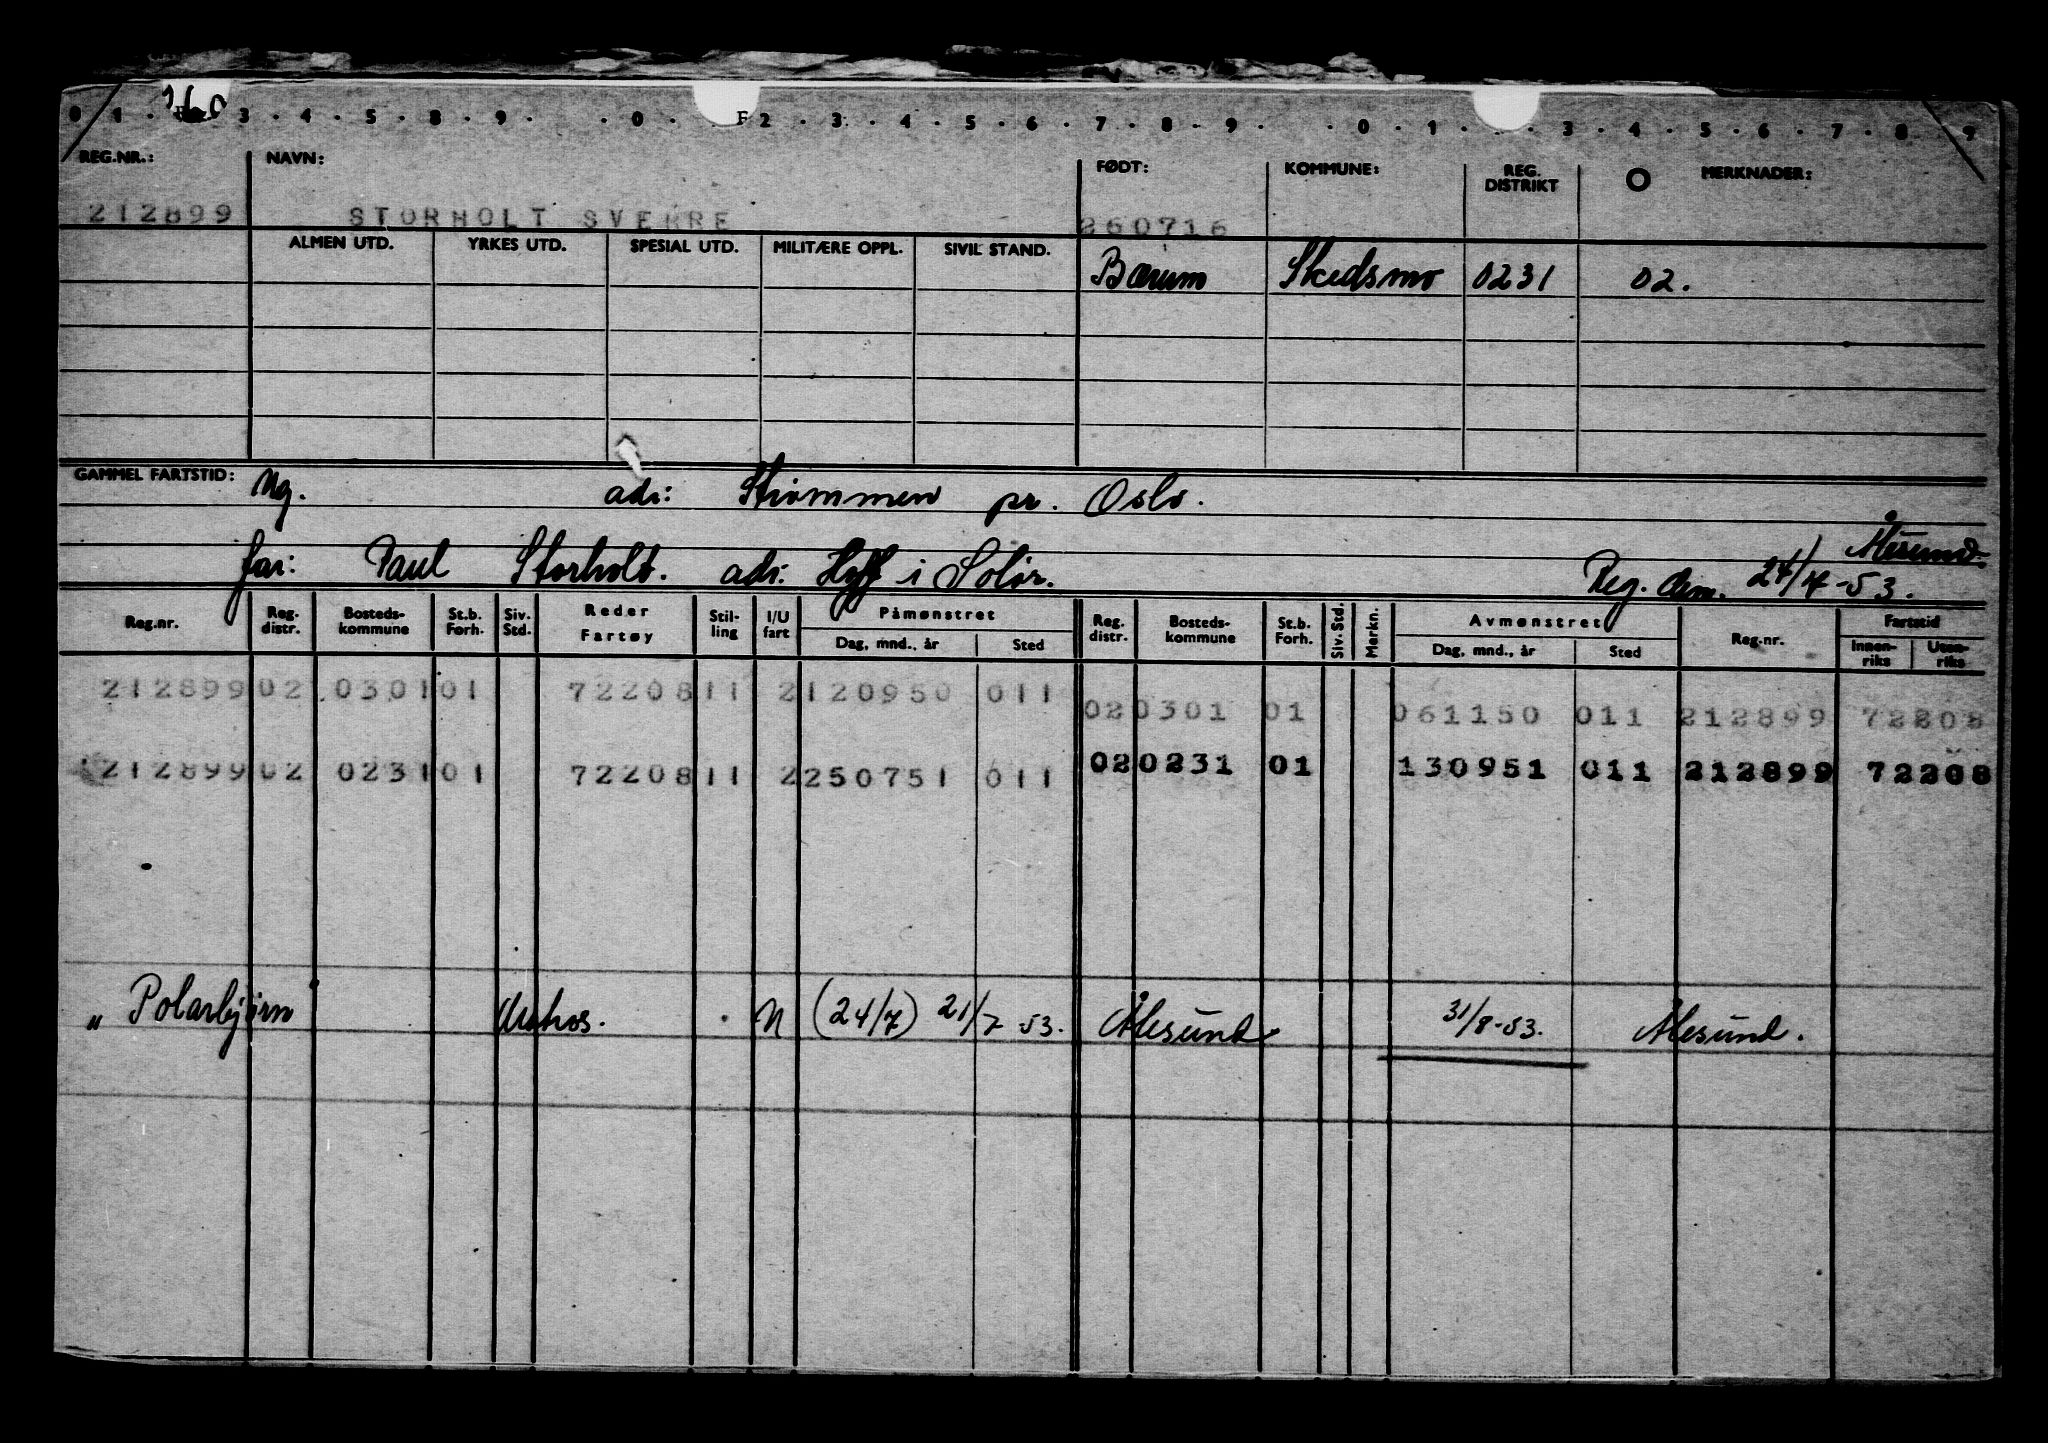 0 1 . 3 . 4 . 5 . 8 . 9 . . 0 . F 2 . 3 . 4 . 5 . 6 . 7 . 8 . 9 . . 0 . 1 . . 3 . 4 . 5 . 6 . 7 . 8 . 9
REG.NR.: NAVN: FØDT: KOMMUNE: REG. DISTRIKT O MERKNADER:
212899 STORHOLT SVERRE 260716
ALMEN UTD. YRKES UTD. SPESIAL UTD. MILITÆRE OPPL. SIVIL STAND.
Bærum Skedsmo 0231 02.
GAMMEL FARTSTID: Ug. adr: Strømmen pr. Oslo.
far: Paul Storholt. adr: i Solør. Reg. Anm. 24/7-53. Ålesund.
Reg.nr. Reg. distr. Bosteds-kommune St.b. Forh. Siv. Std. Reder Fartøy Stil-ling I/U fart Påmønstret Dag, mnd., år Sted Reg. distr. Bosteds-kommune St.b. Forh. Siv. Std. Merkn. Avmønstret Dag, mnd., år Sted Reg.nr. Fartstid Innen-riks Uten-riks
212899 02 0301 01 72208 11 2 120950 011 02 0301 01 061150 011 212899 72208
212899 02 0231 01 72208 11 2 250751 011 02 0231 01 130951 011 212899 72208
„Polarbjørn" Matros. N (24/7) 21/7-53. Ålesund 31/8-53. Ålesund.